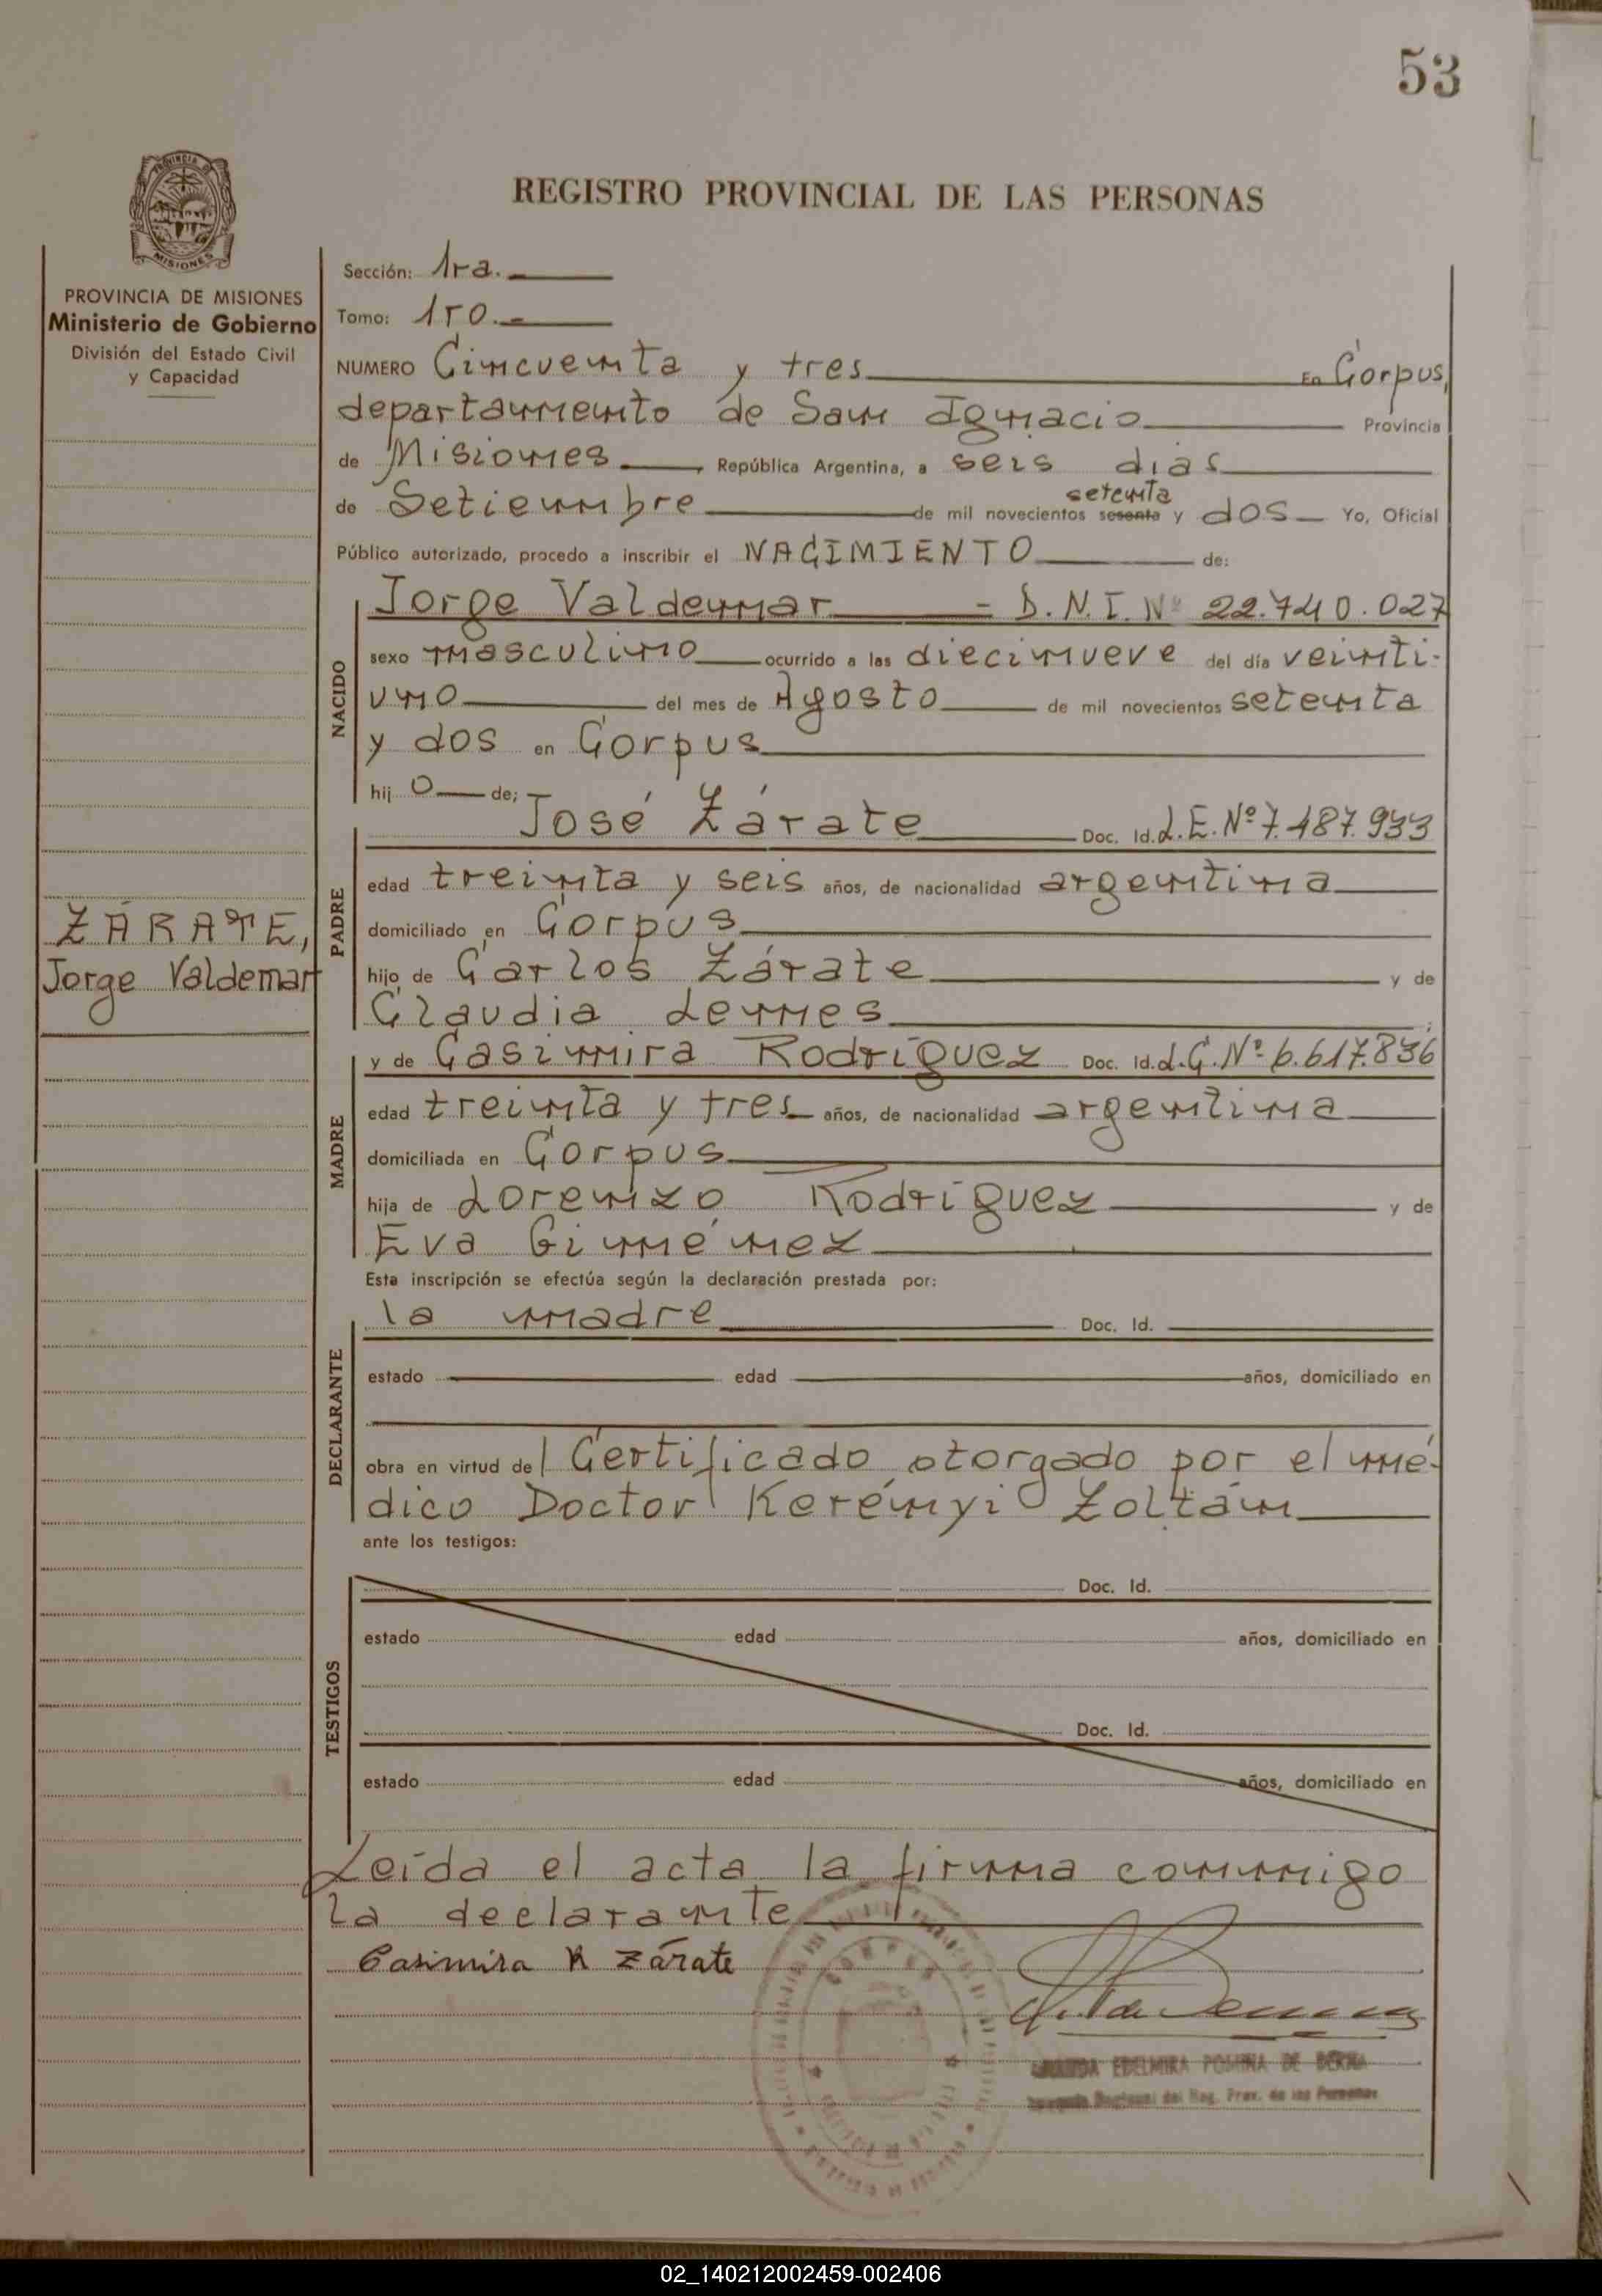 53
PROVINCIA DE
MISIONES
PROVINCIA DE MISIONES
Ministerio de Gobierno
División del Estado Civil
y Capacidad
ZÁRATE,
Jorge Valdemar
REGISTRO PROVINCIAL DE LAS PERSONAS
Sección: 1ra.
Tomo: 1ro.
NUMERO Cincuenta y tres En Corpus,
departamento de San Ignacio Provincia
de Misiones, República Argentina, a seis días
setenta
de Setiembre de mil novecientos sesenta y dos Yo, Oficial
Público autorizado, procedo a inscribir el NACIMIENTO de:
NACIDO
Jorge Valdemar = D.N.I. Nº 22.740.027
sexo masculino ocurrido a las diecinueve del día veinti-
uno del mes de Agosto de mil novecientos setenta
y dos en Corpus
hij o de;
PADRE
José Zárate Doc. Id. L.E. Nº 7.487.933
edad treinta y seis años, de nacionalidad argentina
domiciliado en Corpus
hijo de Carlos Zárate y de
Claudia Lemes
MADRE
y de Casimira Rodríguez Doc. Id. L.C. Nº 6.617.836
edad treinta y tres años, de nacionalidad argentina
domiciliada en Corpus
hija de Lorenzo Rodríguez y de
Eva Giménez
Esta inscripción se efectúa según la declaración prestada por:
DECLARANTE
la madre Doc. Id.
estado edad años, domiciliado en
obra en virtud del Certificado otorgado por el mé-
dico Doctor Kerényi Zoltán
ante los testigos:
TESTIGOS
Doc. Id.
estado edad años, domiciliado en
Doc. Id.
estado edad años, domiciliado en
Leída el acta la firma conmigo
la declarante
Casimira R Zárate
EDELMIRA DE
del Reg. Prov. de las Personas
02_140212002459-002406